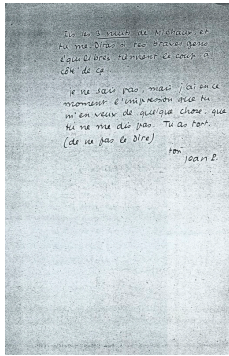 Lis les 3 nuits de Michaux, et
tu me diras si tes braves gens
équilibrés tiennent le coup à
côté de ça.
je ne sais pas, mais j'ai en ce
moment l'impression que tu
m'en veux de quelque chose, que
tu ne me dis pas. Tu as tort.
(de ne pas le dire)
ton
jean P.